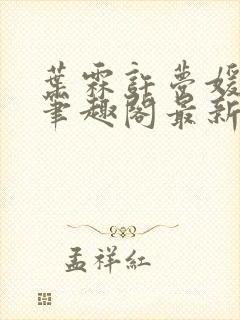 葉霖許夢媛
筆趣閣最新
孟祥紅